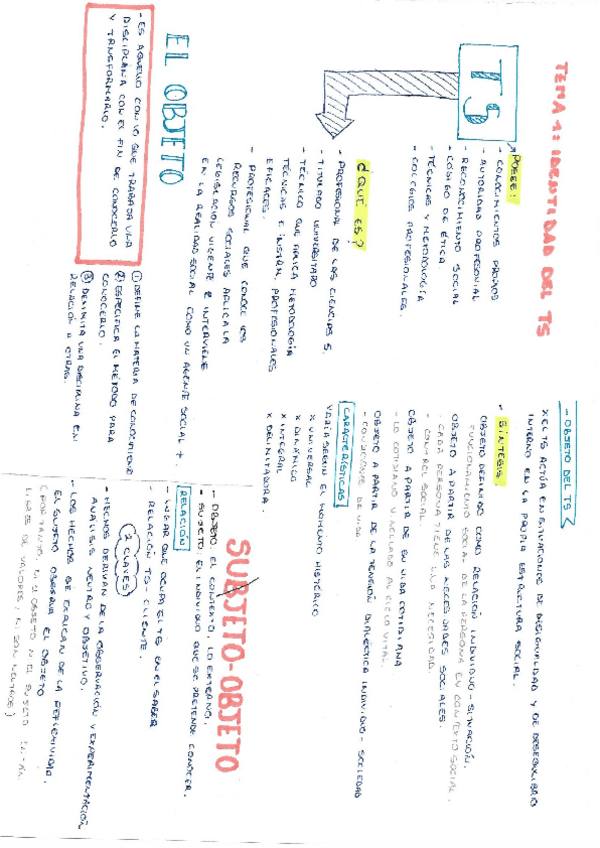 TEMA 1: IDENTIDAD DEL TS
TS
POSEE:
- CONOCIMIENTOS PROPIOS
- AUTORIDAD PROFESIONAL
- RECONOCIMIENTO SOCIAL
- CÓDIGO DE ÉTICA
- TÉCNICAS Y METODOLOGÍA
- COLEGIOS PROFESIONALES.
¿QUÉ ES?
- PROFESIONAL DE LAS CIENCIAS S.
- TITULADO UNIVERSITARIO
- TÉCNICO QUE APLICA METODOLOGÍA
TÉCNICAS E INSTRM. PROFESIONALES
EFICACES.
- PROFESIONAL QUE CONOCE LOS
RECURSOS SOCIALES APLICA LA
LEGISLACIÓN VIGENTE E INTERVIENE
EN LA REALIDAD SOCIAL COMO UN AGENTE SOCIAL +
EL OBJETO
- ES AQUELLO CON LO QUE TRABAJA UNA
DISCIPLINA CON EL FIN DE CONOCERLO
Y TRANSFORMARLO.
① DEFINE LA MATERIA DE CONOCIMIENTO
② ESPECIFICA EL MÉTODO PARA
CONOCERLO.
③ DELIMITA UNA DISCIPLINA EN
RELACIÓN A OTRAS.
- OBJETO DEL TS
X EL TS ACTÚA EN SITUACIONES DE DESIGUALDAD Y DE DESEQUILIBRIO
INTERNO EN LA PROPIA ESTRUCTURA SOCIAL.
- SÍNTESIS:
OBJETO DEFINIDO COMO RELACIÓN INDIVIDUO - SITUACIÓN.
FUNCIONAMIENTO SOCIAL DE LA PERSONA EN CONTEXTO SOCIAL.
OBJETO A PARTIR DE LAS NECESIDADES SOCIALES.
- CADA PERSONA TIENE UNA NECESIDAD.
- CONTROL SOCIAL
OBJETO A PARTIR DE SU VIDA COTIDIANA
- LO COTIDIANO VINCULADO AL CICLO VITAL.
OBJETO A PARTIR DE LA TENSIÓN DIALÉCTICA INDIVIDUO - SOCIEDAD
- CONDICIONES DE VIDA
CARACTERÍSTICAS
VARÍA SEGÚN EL MOMENTO HISTÓRICO
X UNIVERSAL
X DINÁMICO
X INTEGRAL
X DELIMITADORA.
SUBJETO-OBJETO
- OBJETO: EL CONTEXTO, LO EXTERNO.
- SUJETO: EL INDIVIDUO QUE SE PRETENDE CONOCER.
RELACIÓN
- LUGAR QUE OCUPA EL TS EN EL SABER
- RELACIÓN TS - CLIENTE.
2 CLAVES
- HECHOS DERIVAN DE LA OBSERVACIÓN Y EXPERIMENTACIÓN
ANÁLISIS NEUTRO Y OBJETIVO.
- LOS HECHOS SE EXPLICAN DE LA REFLEXIVIDAD.
EL SUJETO OBSERVA EL OBJETO
(POR TANTO, NI EL OBJETO NI EL SUJETO ESTÁN
LIBRES DE VALORES, NI SON NEUTROS)